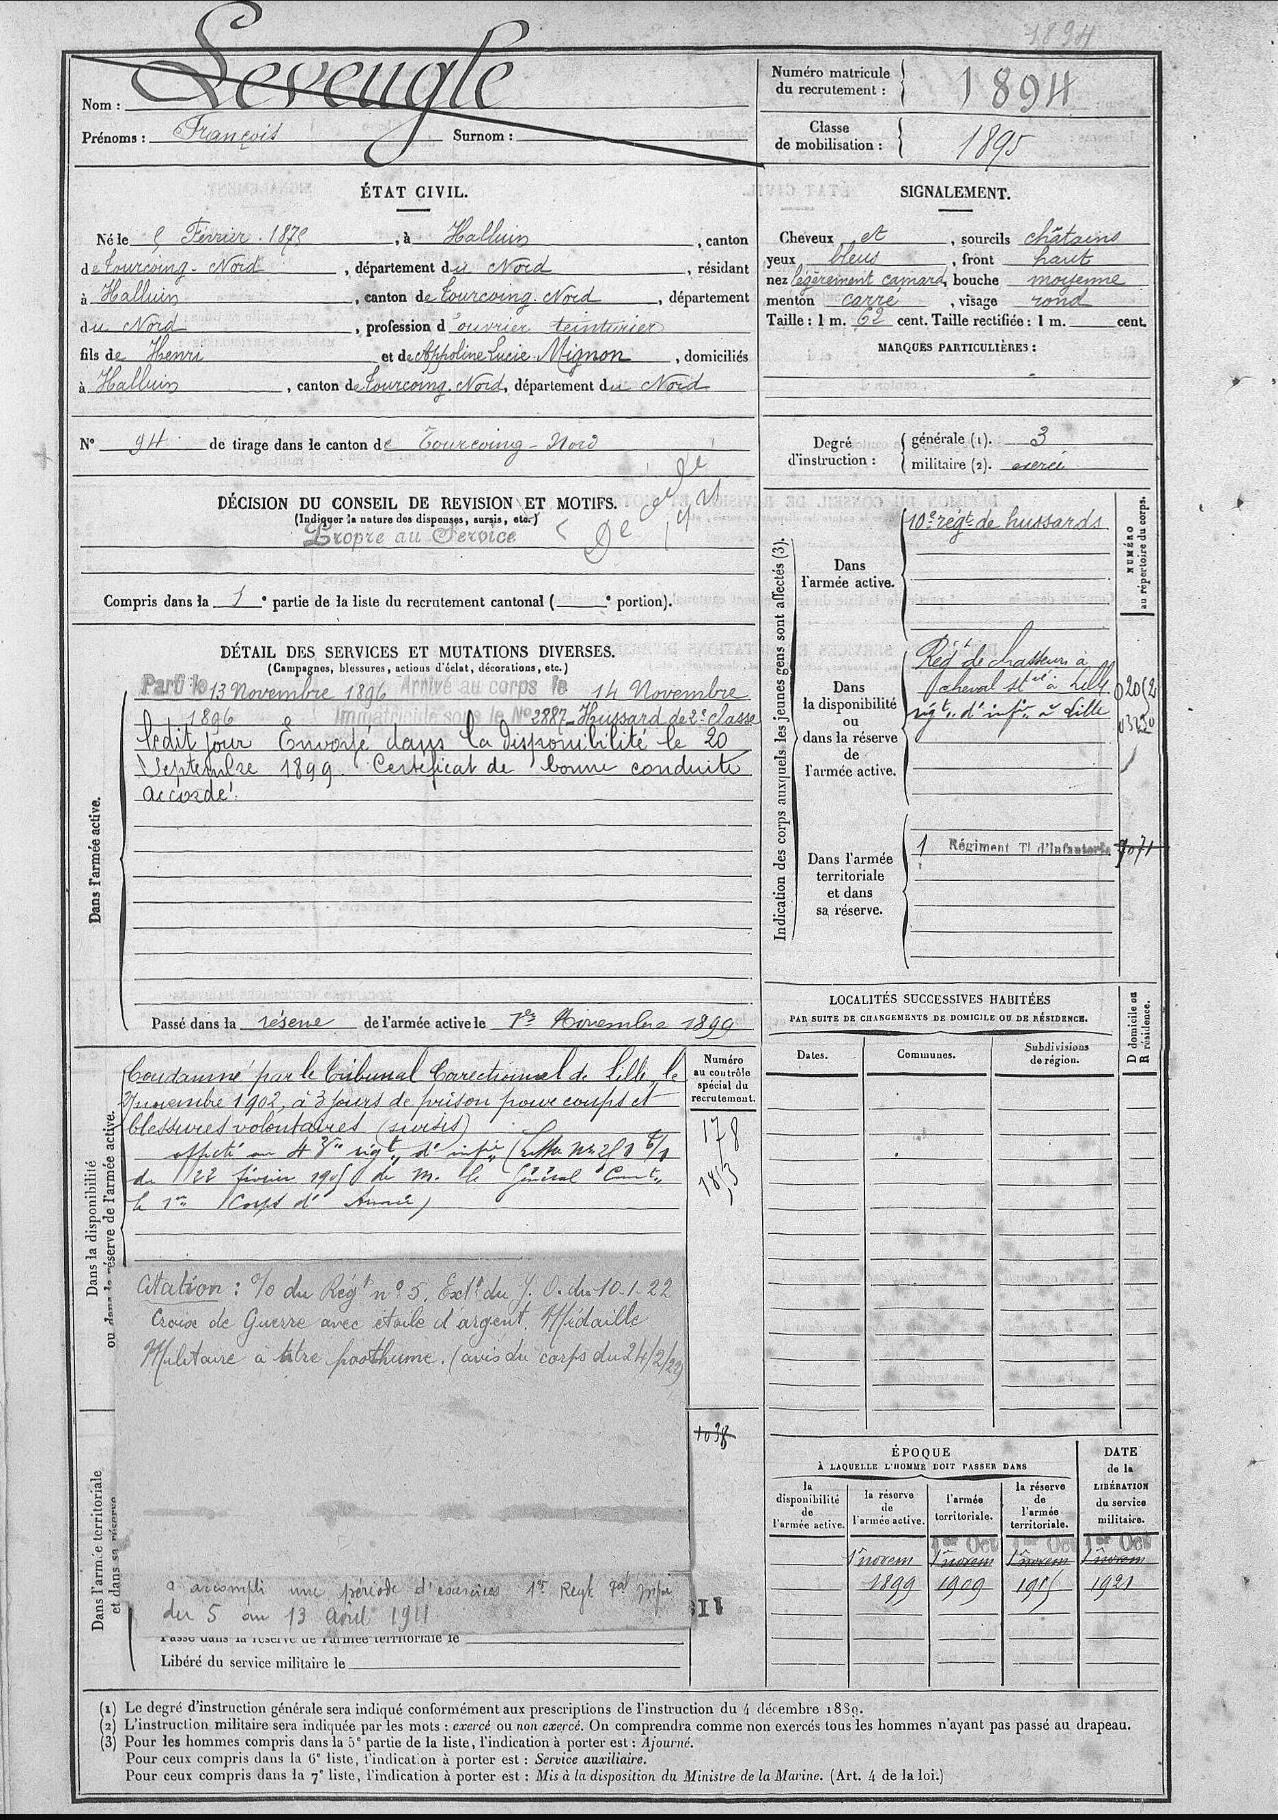 1894
Nom : Leveugle
Prénoms : François Surnom :
Numéro matricule
du recrutement : 1894
Classe
de mobilisation : 1895
ÉTAT CIVIL.
Né le 5 Février 1875, à Halluin, canton
de Tourcoing-Nord, département du Nord, résidant
à Halluin, canton de Tourcoing Nord, département
du Nord, profession d'ouvrier teinturier
fils de Henri et de Appoline Lucie Mignon, domiciliés
à Halluin, canton de Tourcoing Nord, département du Nord
N° 94 de tirage dans le canton de Tourcoing-Nord
SIGNALEMENT.
Cheveux et, sourcils châtains
yeux bleus, front haut
nez légèrement camard, bouche moyenne
menton carré, visage rond
Taille : 1 m. 62 cent. Taille rectifiée : 1 m. cent.
MARQUES PARTICULIÈRES :
Degré
d'instruction :
générale (1). 3
militaire (2). exercé
DÉCISION DU CONSEIL DE REVISION ET MOTIFS.
(Indiquer la nature des dispenses, sursis, etc.)
Propre au Service
Décédé
Compris dans la 1e partie de la liste du recrutement cantonal ( e portion).
DÉTAIL DES SERVICES ET MUTATIONS DIVERSES.
(Campagnes, blessures, actions d'éclat, décorations, etc.)
Dans l'armée active.
Parti le 13 Novembre 1896 Arrivé au corps le 14 Novembre
1896 Immatriculé sous le N° 2887 Hussard de 2e classe
ledit jour Envoyé dans la disponibilité le 20
Septembre 1899. Certificat de bonne conduite
accordé.
Passé dans la réserve de l'armée active le 1er Novembre 1899
Indication des corps auxquels les jeunes gens sont affectés (3).
NUMÉRO
au répertoire du corps.
Dans
l'armée active.
10e régt de hussards
Dans
la disponibilité
ou
dans la réserve
de
l'armée active.
Régt de chasseurs à
cheval à Lille
régt d'infie à Lille
Dans l'armée
territoriale
et dans
sa réserve.
1 Régiment Tl d'Infanterie
LOCALITÉS SUCCESSIVES HABITÉES
PAR SUITE DE CHANGEMENTS DE DOMICILE OU DE RÉSIDENCE.
D domicile ou
R résidence.
Dates.
Communes.
Subdivisions
de région.
Dans la disponibilité
ou dans la réserve de l'armée active.
Numéro
au contrôle
spécial du
recrutement.
178
1853
Condamné par le Tribunal Correctionnel de Lille le
novembre 1902, à 3 jours de prison pour coups et
blessures volontaires (sursis)
affecté au 43e régt d'infie
du 22 février 1905 de M. le Général Comt
le 1er Corps d'Armée)
Citation : % du Régt n° 5. Extt du J. O. du 10-1-22
Croix de Guerre avec étoile d'argent. Médaille
Militaire à titre posthume. (avis du corps du 24/2/22)
1038
Dans l'armée territoriale
et dans sa réserve
a accompli une période d'exercices 1er Regt Tal Infie
du 5 au 13 Avril 1911
Passé dans la réserve de l'armée territoriale le
Libéré du service militaire le
ÉPOQUE
À LAQUELLE L'HOMME DOIT PASSER DANS
DATE
de la
LIBÉRATION
du service
militaire.
la
disponibilité
de
l'armée active.
la réserve
de
l'armée active.
l'armée
territoriale.
la réserve
de
l'armée
territoriale.
1er Oct 1er Oct 1er Oct
1er novem 1er novem 1er novem 1er novem
1899 1909 1915 1921
(1) Le degré d'instruction générale sera indiqué conformément aux prescriptions de l'instruction du 4 décembre 1889.
(2) L'instruction militaire sera indiquée par les mots : exercé ou non exercé. On comprendra comme non exercés tous les hommes n'ayant pas passé au drapeau.
(3) Pour les hommes compris dans la 5e partie de la liste, l'indication à porter est : Ajourné.
Pour ceux compris dans la 6e liste, l'indication à porter est : Service auxiliaire.
Pour ceux compris dans la 7e liste, l'indication à porter est : Mis à la disposition du Ministre de la Marine. (Art. 4 de la loi.)